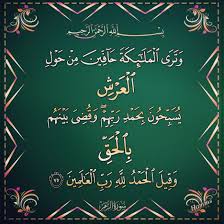 بِسْمِ اللَّهِ الرَّحْمَٰنِ الرَّحِيمِ
وَتَرَى ٱلْمَلَـٰٓئِكَةَ حَآفِّينَ مِنْ حَوْلِ
ٱلْعَرْشِ
يُسَبِّحُونَ بِحَمْدِ رَبِّهِمْ ۖ وَقُضِىَ بَيْنَهُم
بِٱلْحَقِّ
وَقِيلَ ٱلْحَمْدُ لِلَّهِ رَبِّ ٱلْعَـٰلَمِينَ ٧٥
سورة الزمر